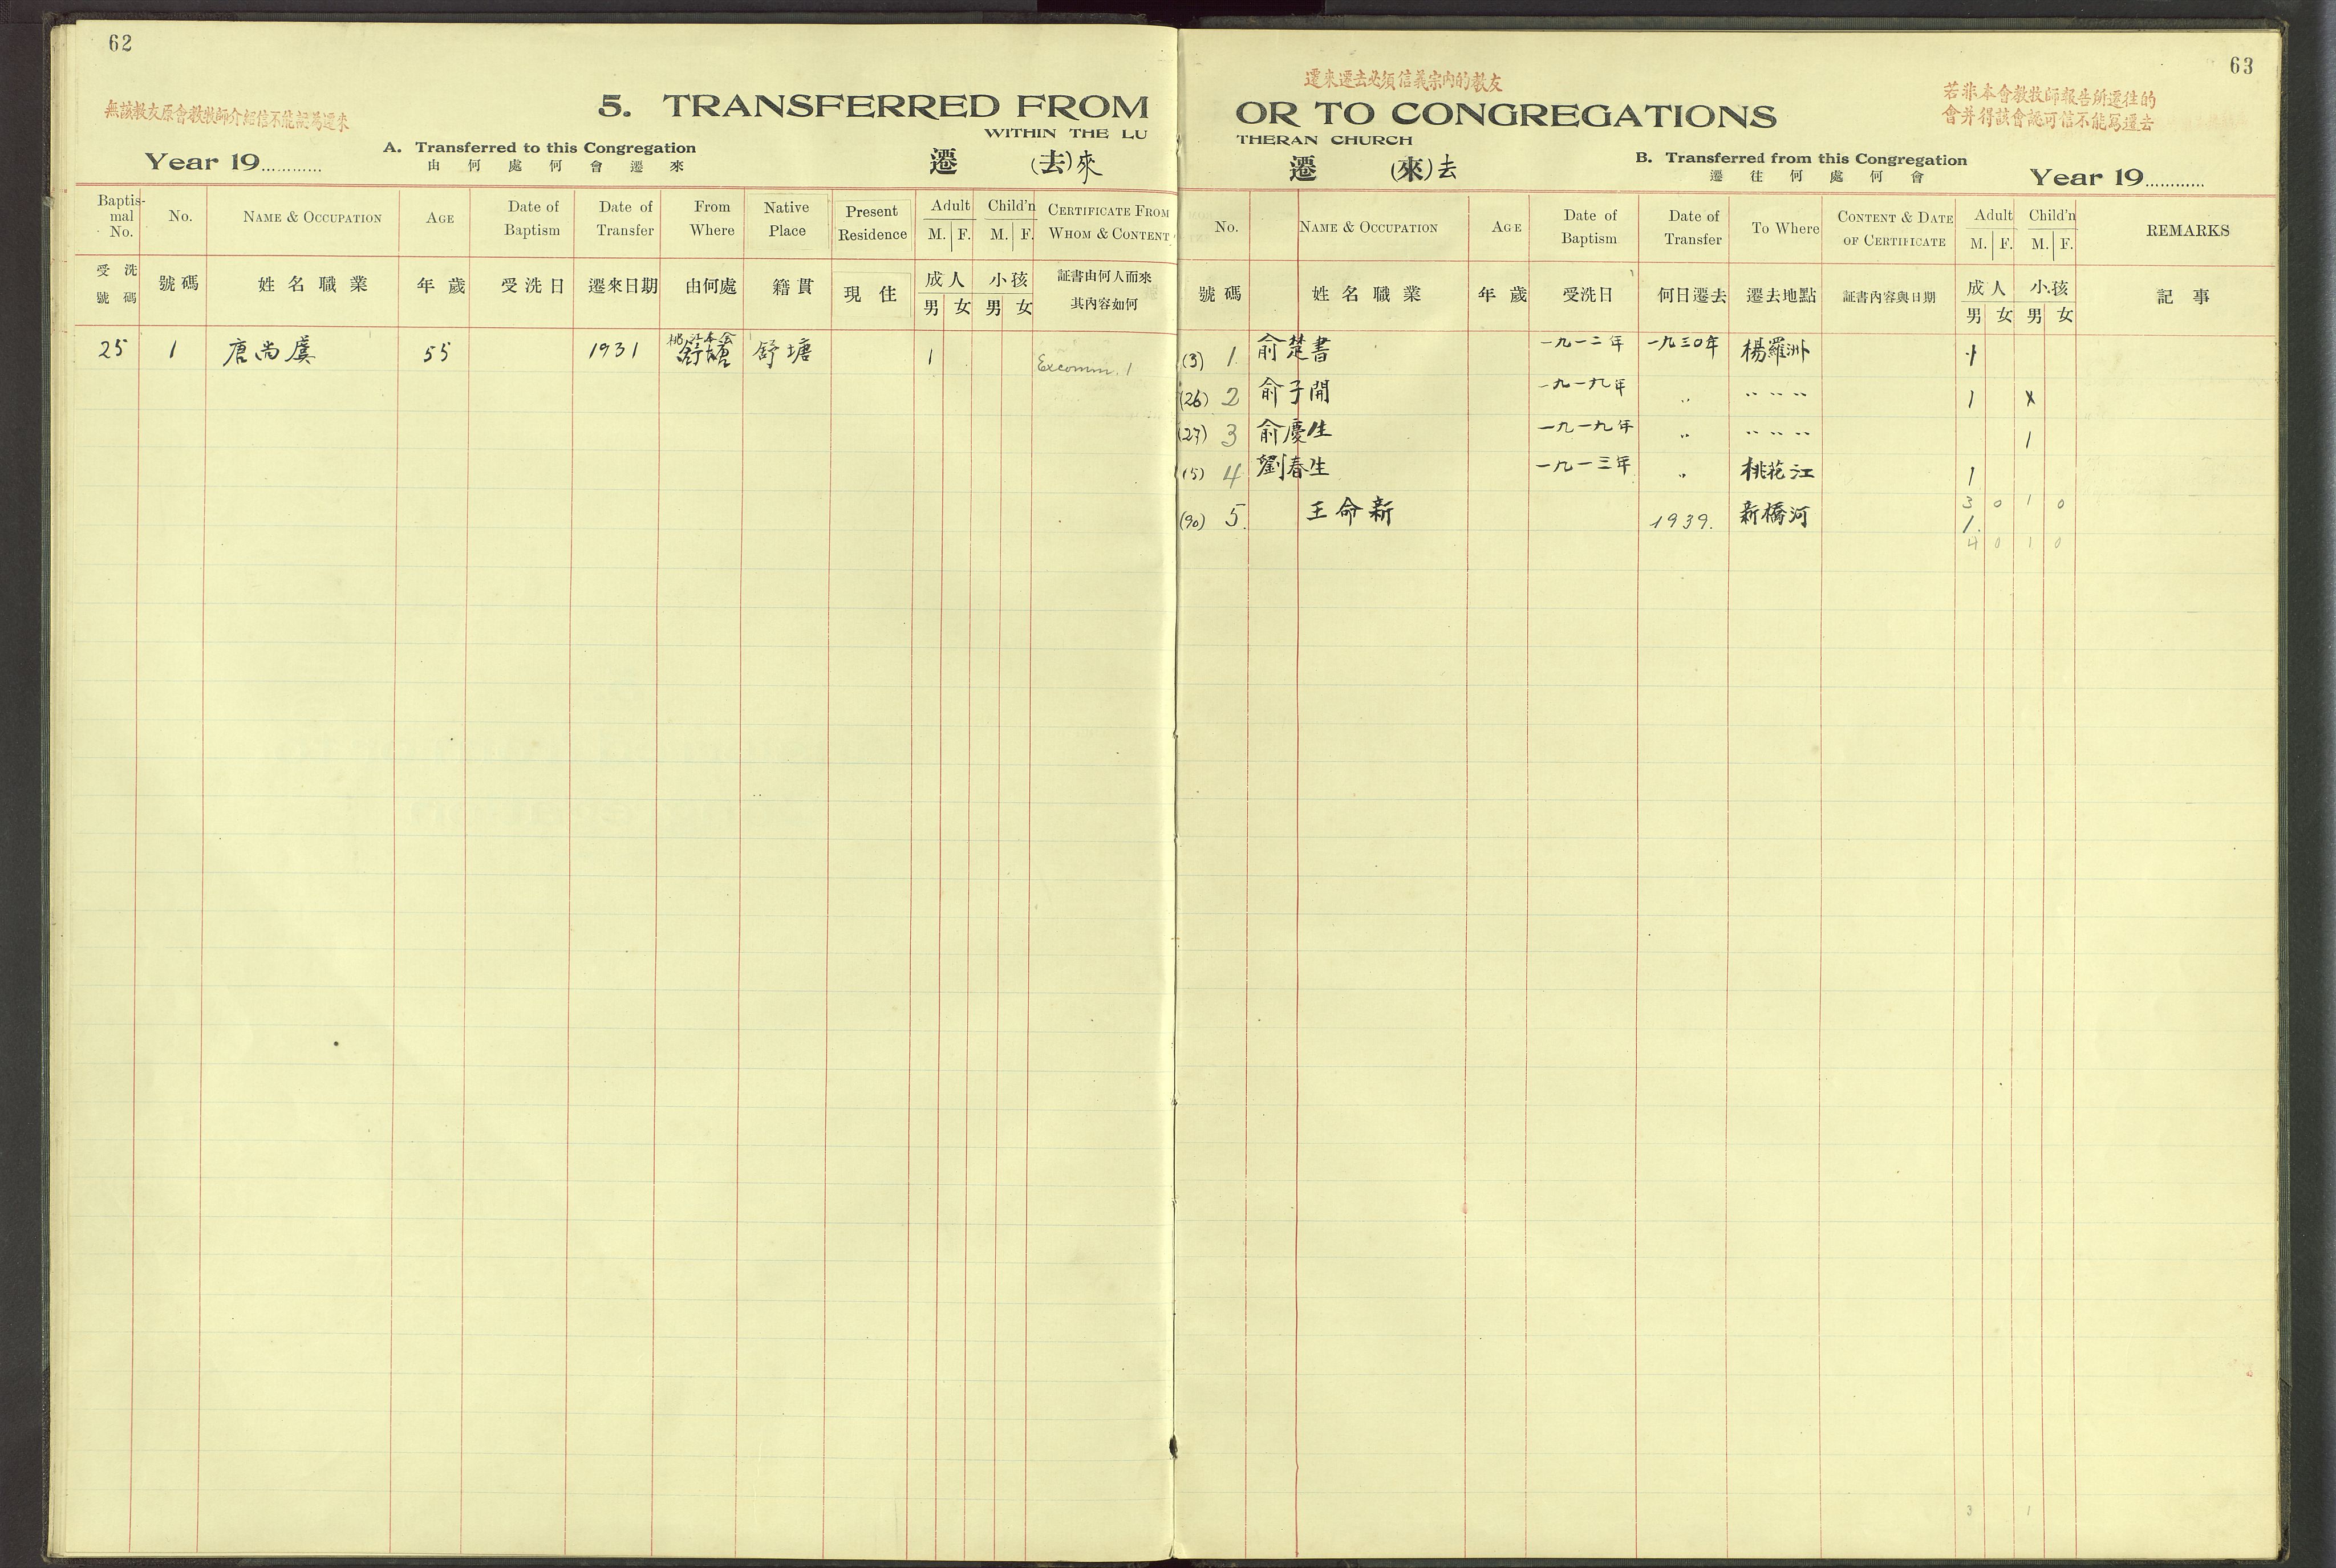 62
無該教友原會教牧師介紹信不能認為遷來
5. TRANSFERRED FROM
WITHIN THE LU
A. Transferred to this Congregation
由何處何會遷來
Year 19............
遷 (去)來
Baptismal No. No. NAME & OCCUPATION AGE Date of Baptism Date of Transfer From Where Native Place Present Residence Adult M. F. Child'n M. F. CERTIFICATE FROM WHOM & CONTENT
受洗號碼 號碼 姓名職業 年歲 受洗日 遷來日期 由何處 籍貫 現住 成人 男 女 小孩 男 女 証書由何人而來其內容如何
25 1 唐尚虞 55 1931 舒塘 舒塘 1 Excomm. 1
63
遷來遷去必須信義宗內的教友
若非本會教牧師報告所遷往的
會并得該會認可信不能寫遷去
OR TO CONGREGATIONS
THERAN CHURCH
遷 (來)去
B. Transferred from this Congregation
遷往何處何會
Year 19............
No. NAME & OCCUPATION AGE Date of Baptism Date of Transfer To Where CONTENT & DATE OF CERTIFICATE Adult M. F. Child'n M. F. REMARKS
號碼 姓名職業 年歲 受洗日 何日遷去 遷去地點 証書內容與日期 成人 男 女 小孩 男 女 記事
(3) 1 俞楚書 一九一二年 一九三0年 楊羅洲 1
(26) 2 俞子開 一九一九年 〃 〃 〃 〃 1 x
(27) 3 俞慶生 一九一九年 〃 〃 〃 〃 1
(15) 4 劉春生 一九一三年 〃 桃花江 1
3 0 1 0
(90) 5. 王命新 1939. 新橋河 1.
4 0 1 0
3 1